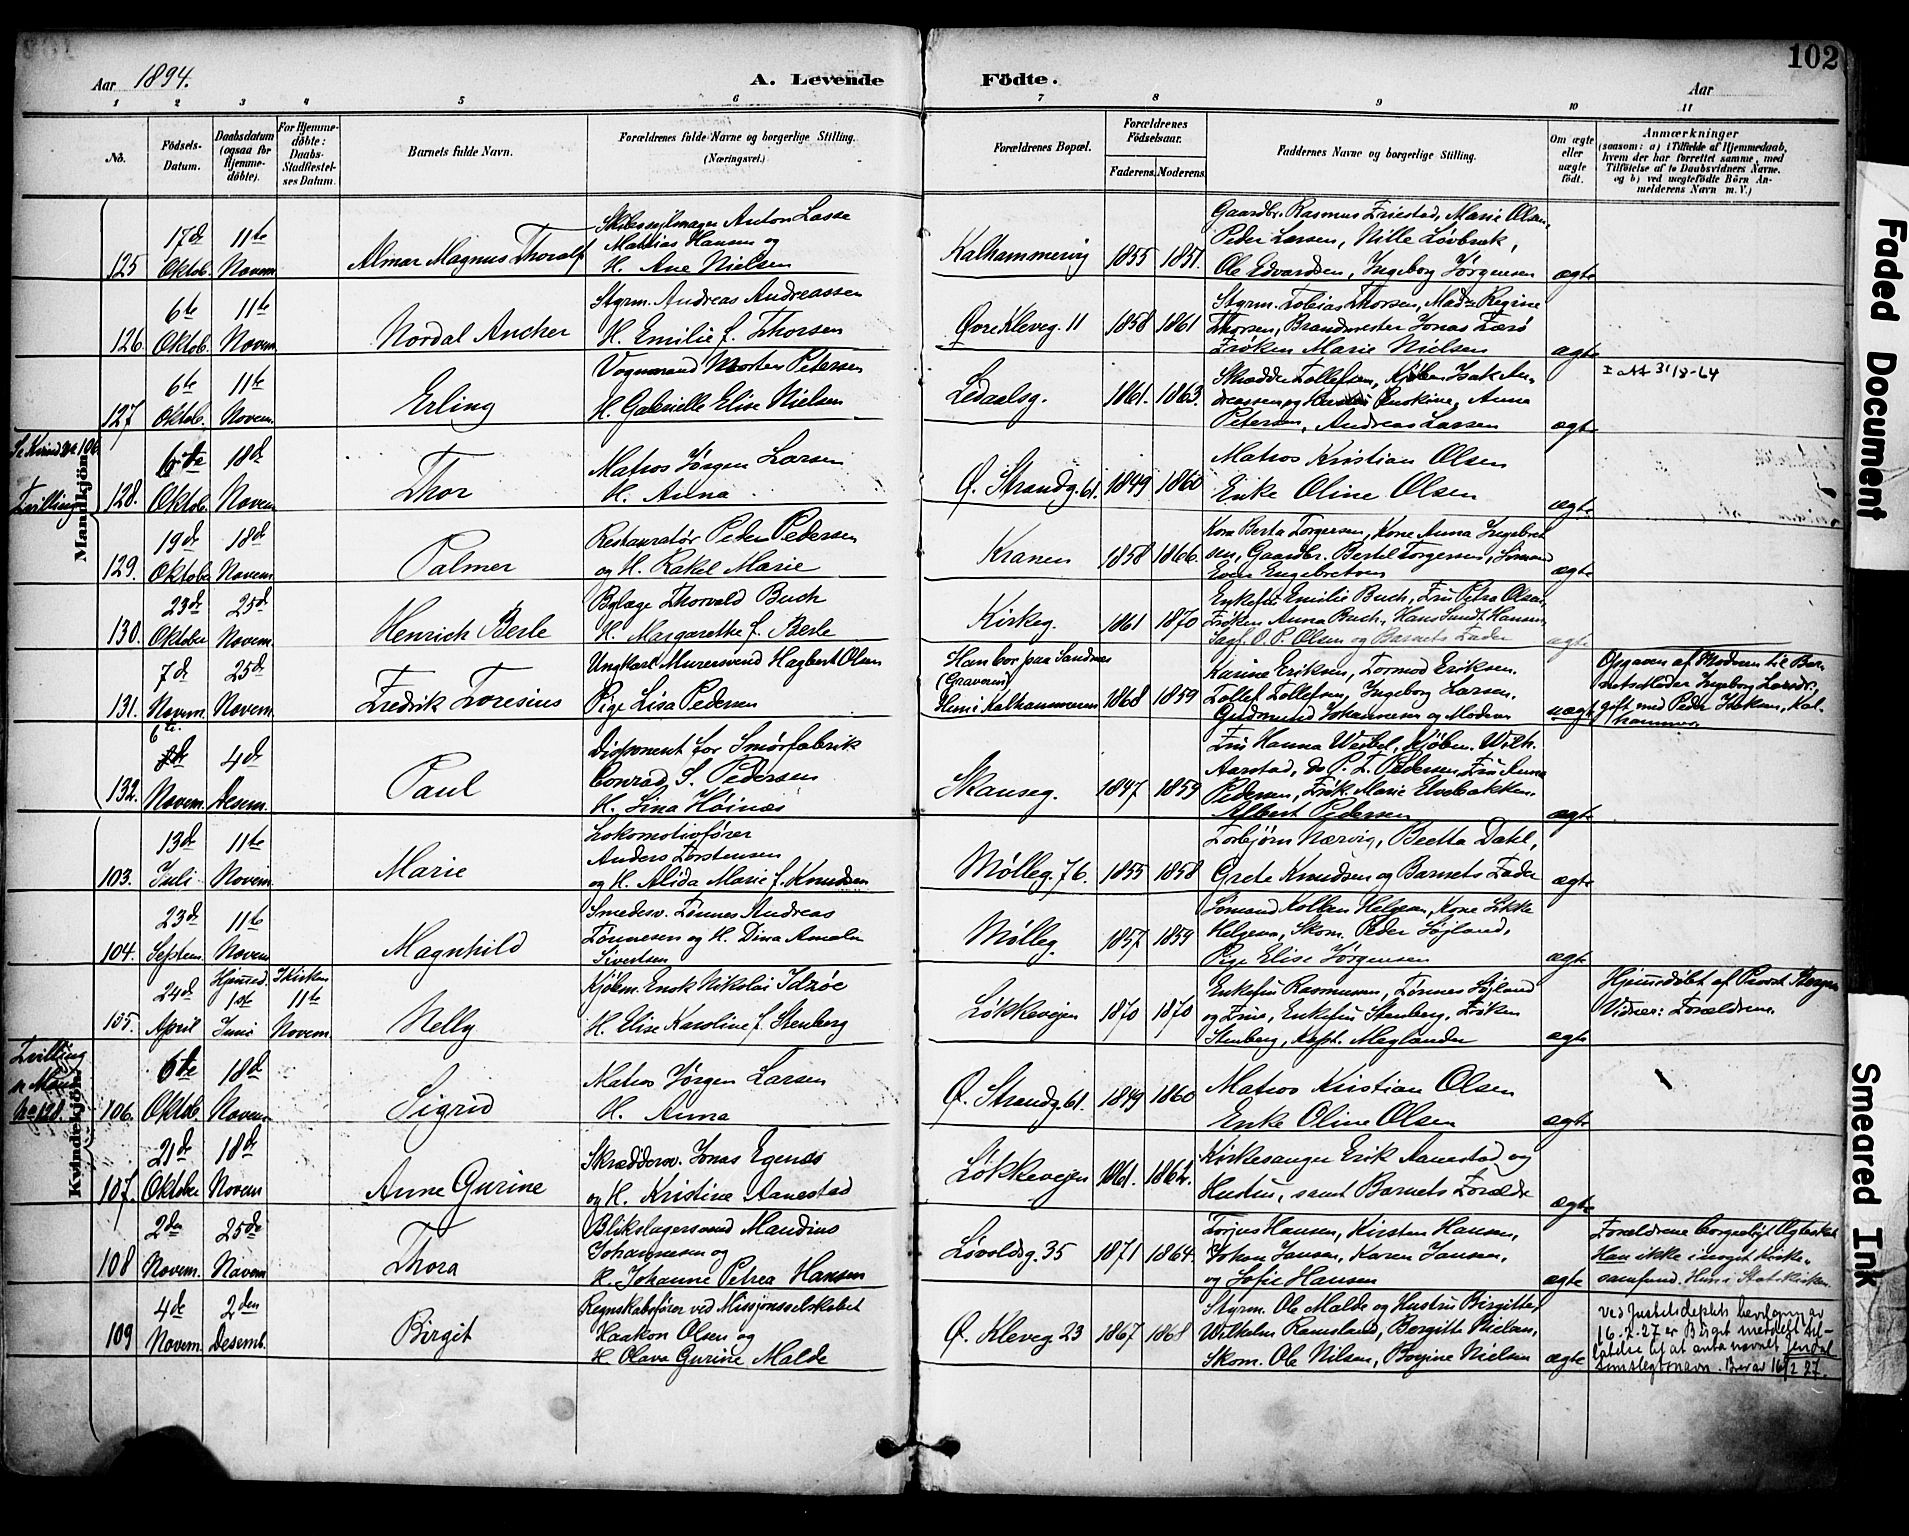 102
Aar 1894.
A. Levende Födte.
Aar
1 2 3 4 5 6 7 8 9 10 11
No.
Födsels-Datum.
Daabsdatum (ogsaa for Hjemme-döbte).
For Hjemme-döbte: Daabs-Stadfæstel-ses Datum.
Barnets fulde Navn.
Forældrenes fulde Navne og borgerlige Stilling. (Næringsvei.)
Forældrenes Bopæl.
Forældrenes Födselsaar.
Faderens. Moderens.
Faddernes Navne og borgerlige Stilling.
Om ægte eller uægte födt.
Anmærkninger
(saasom: a) i Tilfælde af Hjemmedaab,
hvem der har forrettet samme, med
Tilföielse af to Daabsvidners Navne,
og b) ved uægtefödte Börn An-
melderens Navn m. V.)
Mandkjön.
125 17de Oktob. 11te Novem.
Almar Magnus Thoralf
Anton Lasse
Mathias Hansen og
H. Ane Nielsen
Kalhammervig 1855 1857.
Gaardbr. Rasmus Friestad, Marie Olsen,
Peder Larsen, Nille Løvbræk,
Ole Edvardsen, Ingeborg Jørgensen
ægte
126. 6te Oktob. 11te Novem.
Nordal Ancher
Styrm. Andreas Andreassen
H. Emilie f. Thorsen
Øvre Kleveg. 11 1858 1861
Styrm. Tobias Thorsen, Mad. Regine
Thorsen, Brandmester Jonas
Frøken Marie Nielsen
ægte
127 6te Oktob. 11te Novem.
Erling
Vognmand Morten Petersen
H. Gabrielle Elise Nielsen
Ledaalsg. 1861. 1863.
Skrædder Tollefsen, Isak An-
dreassen og Anna
Petersen, Andreas Larsen
ægte
31/8-64
Se Kvind no 106
Tvilling
128. 6te Oktob. 18de Novem.
Thor
Matros Jørgen Larsen
H. Anna
Ø. Strandg. 61. 1849 1860
Matros Kristian Olsen
Enke Oline Olsen
ægte
129. 19de Oktober 18de Novem.
Palmer
Restauratør Peder Pedersen
og H. Rakel Marie
Kranen 1858 1866.
Kone Berta Torgersen, Kone Anna Ingebret
sen, Gaardbr. Bertil Torgersen, Sømand
Even Engebretsen
ægte
130. 23de Oktober 25de Novem.
Henrich Berle
Bylæge Thorvald Buch
H. Margarethe f. Berle
Kirkeg. 1861 1870
Enkefru Emilie Buch, Fru Petra Olsen,
Frøken Anna Buch, Hans Sundt Hansen,
Sagf. O. P. Olsen og Barnets Fader
ægte
131. 7de Novem. 25de Novem.
Fredrik Toresius
Ungkarl Murersvend Hagbert Olsen
Pige Lisa Pedersen
Han bor paa Sandnes
(Graveren)
Hun i Kalhammeren 1868 1859
Karine Eriksen, Tormod Eriksen.
Tollef Tollefsen, Ingeborg Larsen.
Gudmund Johannesen og Moderen
uægte
Opgaven af Modren til Bar-
nets Ingeborg
gift med Peder Isaksen, Kal-
hammer.
132. 6te Novem. 4de Desem.
Paul
Disponent for Smørfabrik
Conrad S. Pedersen
H. Lina Høinæs
Skanseg. 1847 1859
Fru Hanna Weibel, Kjøbm. Wilh.
Aarstad, do P. T. Pedersen, Fru Anna
Pedersen, Frøk. Marie Elvebakken.
Albert Pedersen
ægte
Kvindekjön.
103. 13de Juli 11te Novem.
Marie
Lokomotivfører
Anders Torstensen
og H. Alida Marie f. Knudsen
Mølleg. 76. 1855 1858
Torbjørn Nærvig, Beetta Dahl,
Grete Knudsen og Barnets Fader
ægte
104. 23de Septem. 11te Novem.
Magnhild
Smedesv. Tønnes Andreas
Tønnesen og H. Dina Amalie
Sivertsen
Mølleg. 1857 1859
Sømand Kolben Helgesen, Kone Sikke
Helgesen, Skom. Peder Søiland,
Pige Elise Jørgensen
ægte
105. 24de April Hjemmed. 1ste Juni I Kirken 11te Novem.
Nelly
Kjøbm. Enok Nikolai Idsøe
H. Elise Karoline f. Stenberg
Løkkevejen 1870 1870
Enkefru Rasmussen, Tønnes Søiland
og Frue, Enkefru Stenberg, Frøken
Stenberg, Kapt. Meglander
ægte
Hjemmedøbt af Provst
Vidner: Forældrene.
Tvilling
m Mand
No 128.
106. 6te Oktob. 18de Novem.
Sigrid
Matros Jørgen Larsen
H. Anna
Ø. Strandg. 61. 1849 1860
Matros Kristian Olsen
Enke Oline Olsen
ægte
107. 21de Oktober 18de Novem
Anne Gurine
Skræddersv. Jonas Egenæs
og H. Kristine Aanestad
Løkkevejen 1861. 1862.
Kirkesanger Erik Aanestad og
Hustru, samt Barnets Forældre
ægte
108 2den Novem. 25de Novem
Thora
Blikslagersvend Maudius
Johannesen og
H. Johanne Petrea Hansen
Løvoldsg. 35 1871 1864.
Torjus Hansen, Kirsten Hansen,
Johan Jansen, Karen Jansen,
og Sofie Hansen
ægte
Forældrene borgerligt Ægteskab
Han ikke i noget Kirke-
samfund. Hun i Statskirken.
109 4de Novem. 2den Desemb.
Birgit
Regnskabsfører ved Missjonsselskabet
Haakon Olsen og
H. Olava Gurine Malde
Ø. Kleveg 23 1867 1868
Styrm. Ole Malde og Hustru Birgitte,
Wilhelm Ramsland, Bergitte Nielsen,
Skom. Ole Nilsen, Bovine Nielsen
ægte
Ved Justitsdeptets bevilgning av
16-2-27 er Birgit meddelt til-
latelse til at anta navnet
som slegtsnavn. Brev av 16/2 27.
Faded Document
Smeared Ink